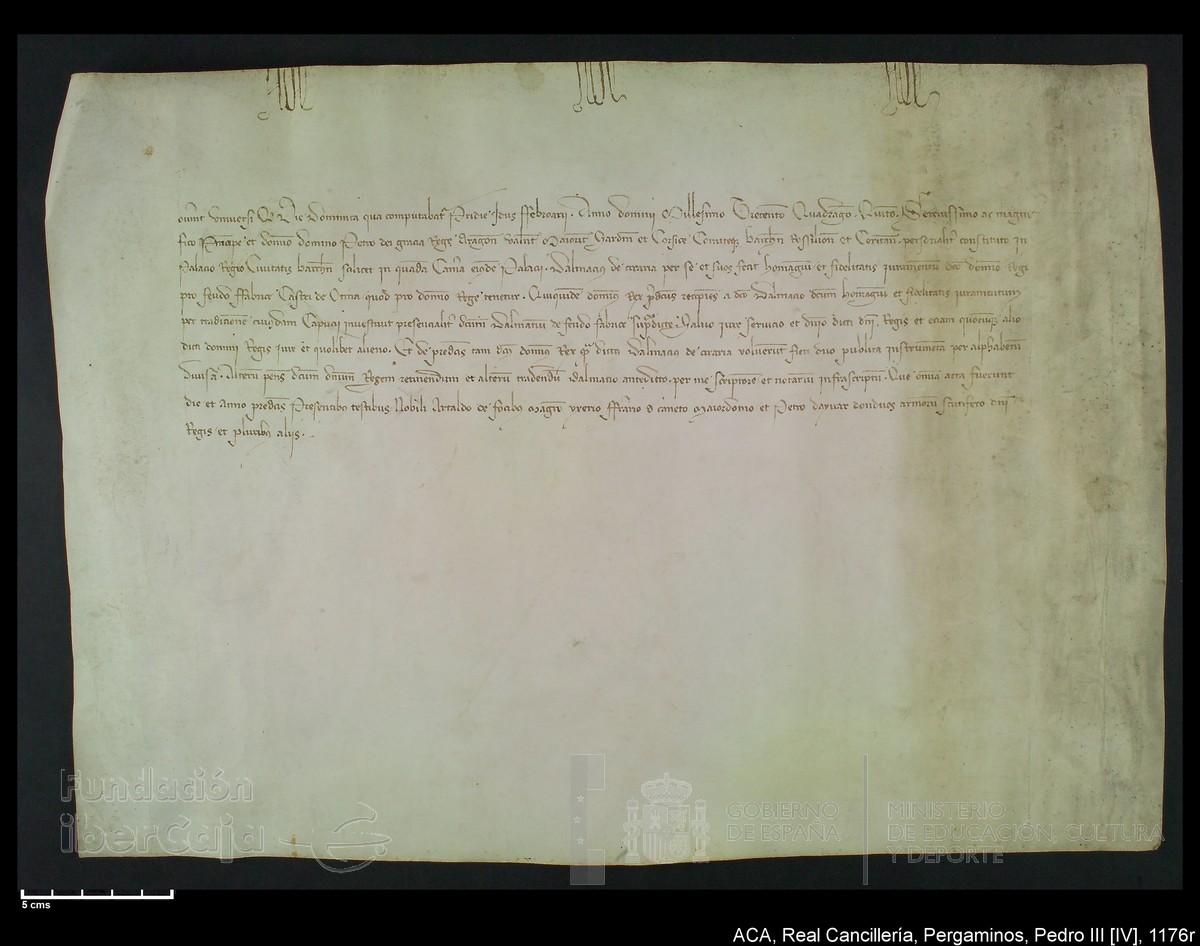 overint Universi Qd Die Dominica qua computabatr Pridie Idus Ffebroarij. Anno domini Millesimo Trecento Quadrago. Quinto. Serenissimo ac magni
fico Principe et domino domino Petro dei gracia Rege Aragon Valnt Maioric Sardin et Corsice Comiteqz Barchn Rossilion et Ceritan. personalitr constituto in
Palacio Regio Civitatis barchn scilicet in quada Camra eiusde Palacij. Dalmacius de ciraria per se et suos fecit homagium et fidelitatis iuramentu dco domino Regi
pro feudo Ffabrice Castri de quod pro domino Rege tenetur. Quiquide dominus Rex recipies a dco Dalmacio dcum homagiu et fidelitatis iuramentum
per tradicione cuiusdam Capucij investivit presencialitr dcum Dalmaciu de feudo fabrice supradicte. Salvo iure servicio et dnio dicti dni Regis et eciam quocuqz alio
dicti domini Regis iure et quolibet alieno. Et de predcis tam dcus dominus Rex qm dictus Dalmacius de ciraria voluerut fieri duo publica instrumeta per alphabetu
divisa. Alteru penes dcum dnum Regem retinendum et alteru tradendu Dalmacio antedicto. per me scriptore et notariu infrascriptu. Que omia acta fuerunt
die et Anno predcis Presentibs testibus Nobili Artaldo de focibs Magro yxerio Ffrario d caneto Maiordomio et Petro dayvar armoru scutifero dni
Regis et pluribus alijs.
Fundación
iberCaja
GOBIERNO
DE ESPAÑA
MINISTERIO
DE EDUCACIÓN, CULTURA
Y DEPORTE
5 cms
ACA, Real Cancillería, Pergaminos, Pedro III [IV], 1176r